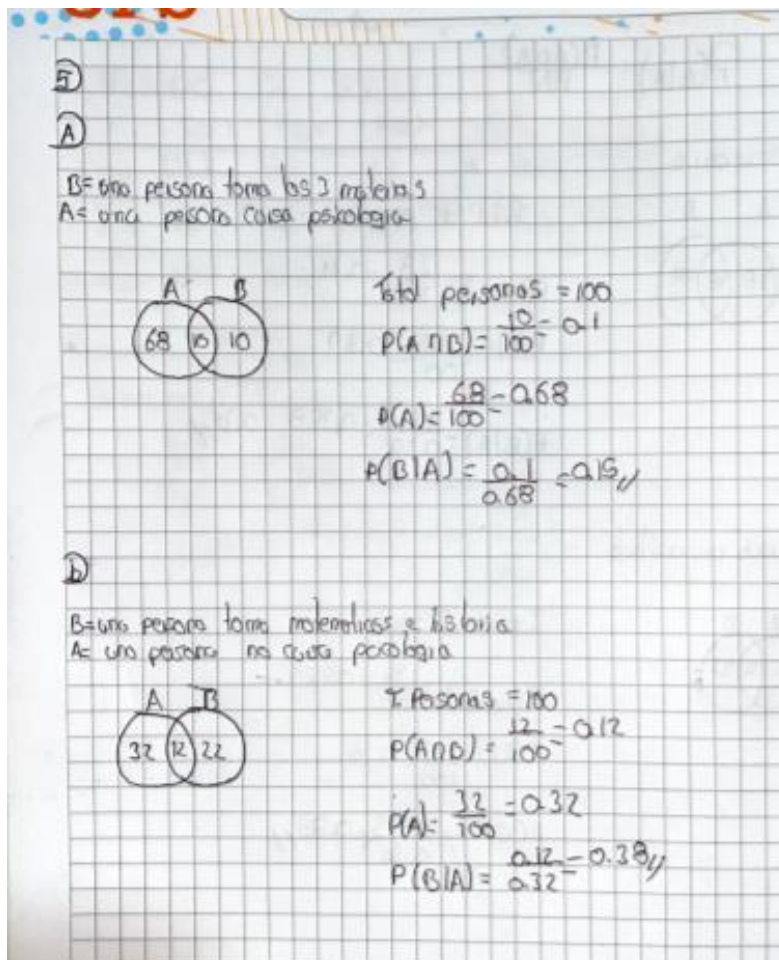 5
A
B= una persona toma las 3 materias
A= una persona cursa psicologia
A B
68 10 10
Total personas = 100
P(A∩B)= 10/100 = 0.1
P(A)= 68/100 = 0.68
P(B|A) = 0.1/0.68 = 0.15
b
B= una persona toma matematicas e historia
A= una persona no cursa psicologia
A B
32 12 22
T Personas = 100
P(A∩B) = 12/100 = 0.12
P(A)= 32/100 = 0.32
P(B|A) = 0.12/0.32 = 0.38